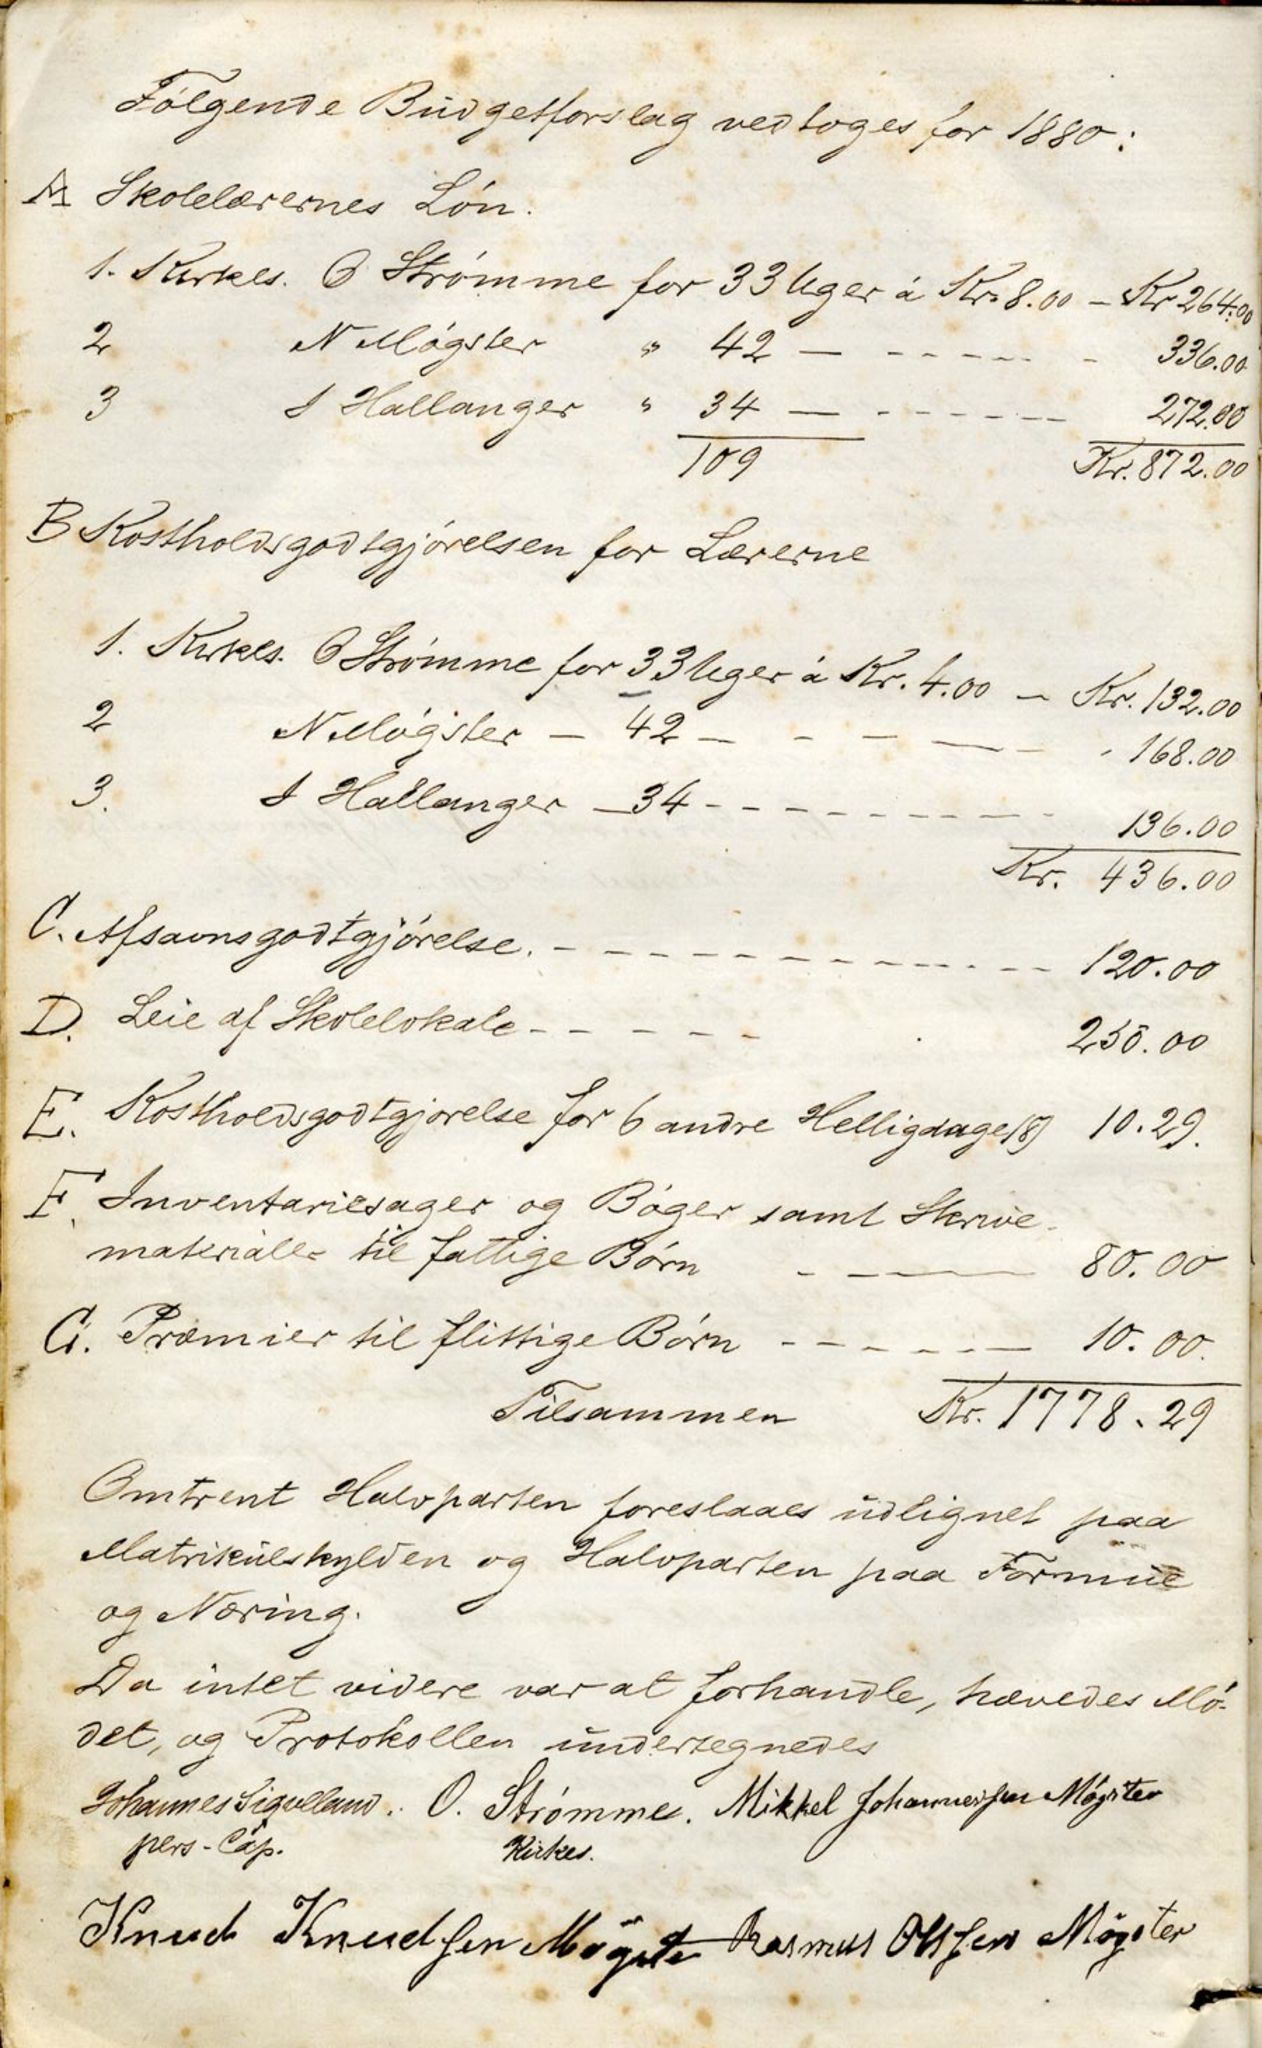 Følgende Budgetforslag vedtoges for 1880:
A Skolelærernes Løn.
1. Kirkes. O Strømme for 33 Uger á Kr. 8.00 – Kr 264.00
2 N Møgster " 42 — - - - - - 336.00
3 J Hallanger " 34 — - - - - - 272.00
109 Kr. 872.00
B Kostholdsgodtgjørelsen for Lærerne
1. Kirkes. O Strømme for 33 Uger á Kr. 4.00 – Kr. 132.00
2 N Møgster – 42 – - - - - 168.00
3. J Hallanger – 34 - - - - - - 136.00
Kr. 436.00
C. Afsavnsgodtgjørelse. - - - - - - - - 120.00
D. Leie af Skolelokale - - - - - 250.00
E. Kostholdsgodtgjørelse for 6 andre Helligdage 10.29.
F. Inventariesager og Bøger samt Skrive-
materialer til fattige Børn - - — 80.00
G. Præmier til flittige Børn - - - - - - 10.00.
Tilsammen Kr. 1778.29
Omtrent Halvparten foreslaaes udlignet paa
Matrikulskylden og Halvparten paa Formue
og Næring.
Da intet videre var at forhandle, hævedes Mø-
det, og Protokollen undertegnedes
Johannes Sigvelland. O. Strømme. Mikkel Johannessen Møgster
pers-Cap. Kirkes.
Knud Knudsen Møgster Rasmus Olssen Møgster